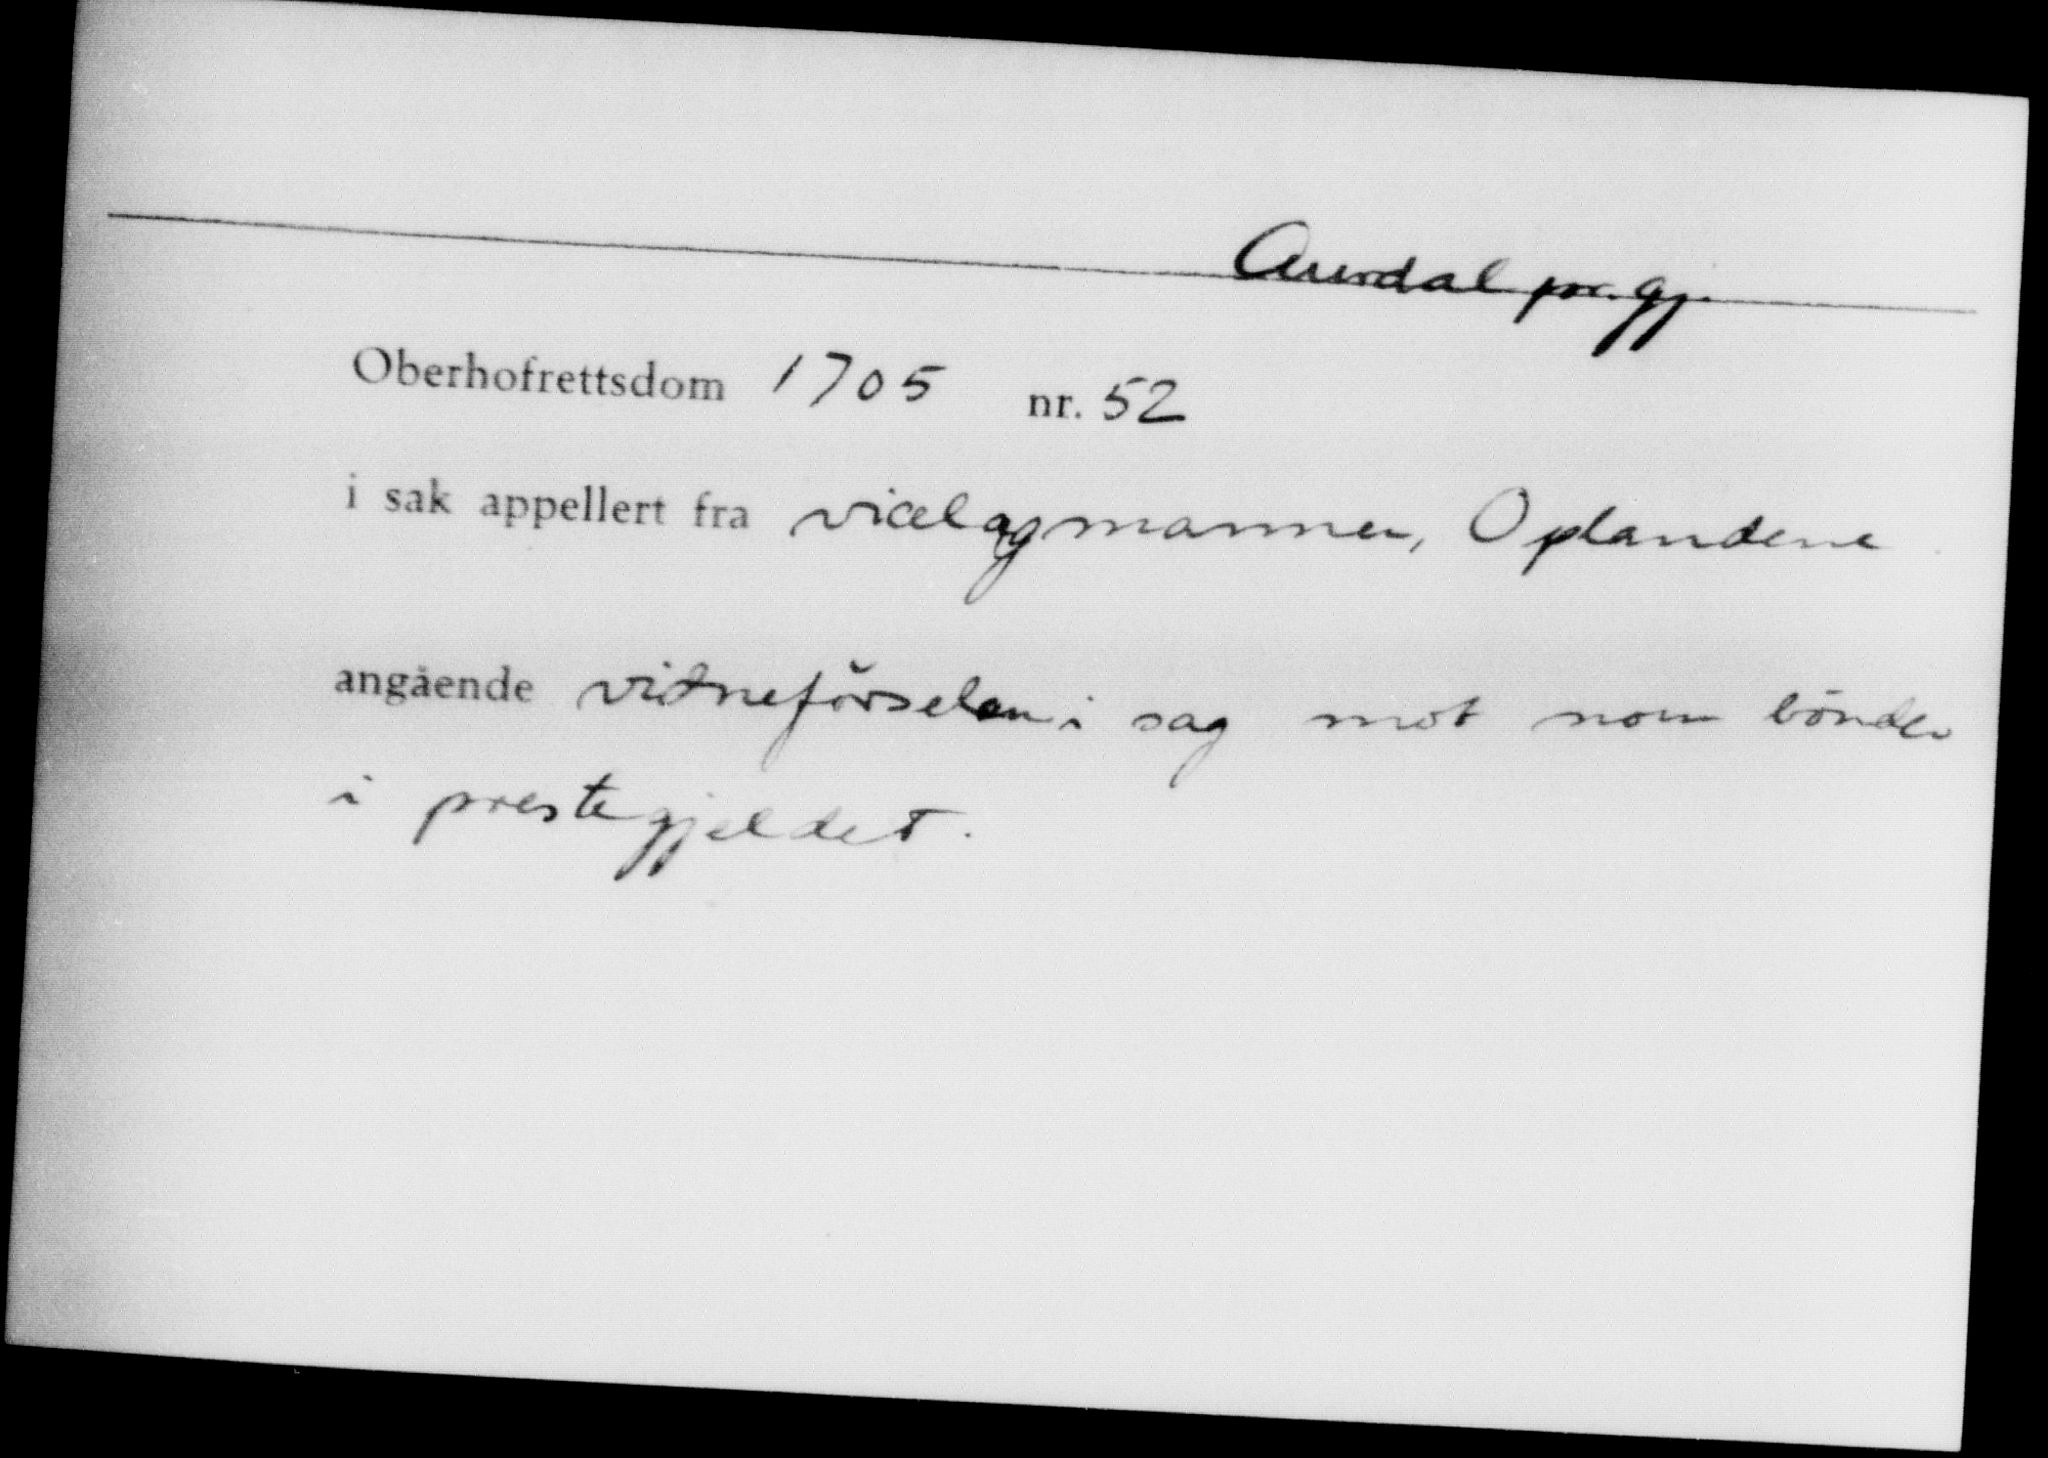 Aurdal pr. gj.
Oberhofrettsdom 1705 nr. 52
i sak appellert fra vicelagmannen, Oplandene
angående vidneförselen i sag mot noen bönder
i prestegjeldet.